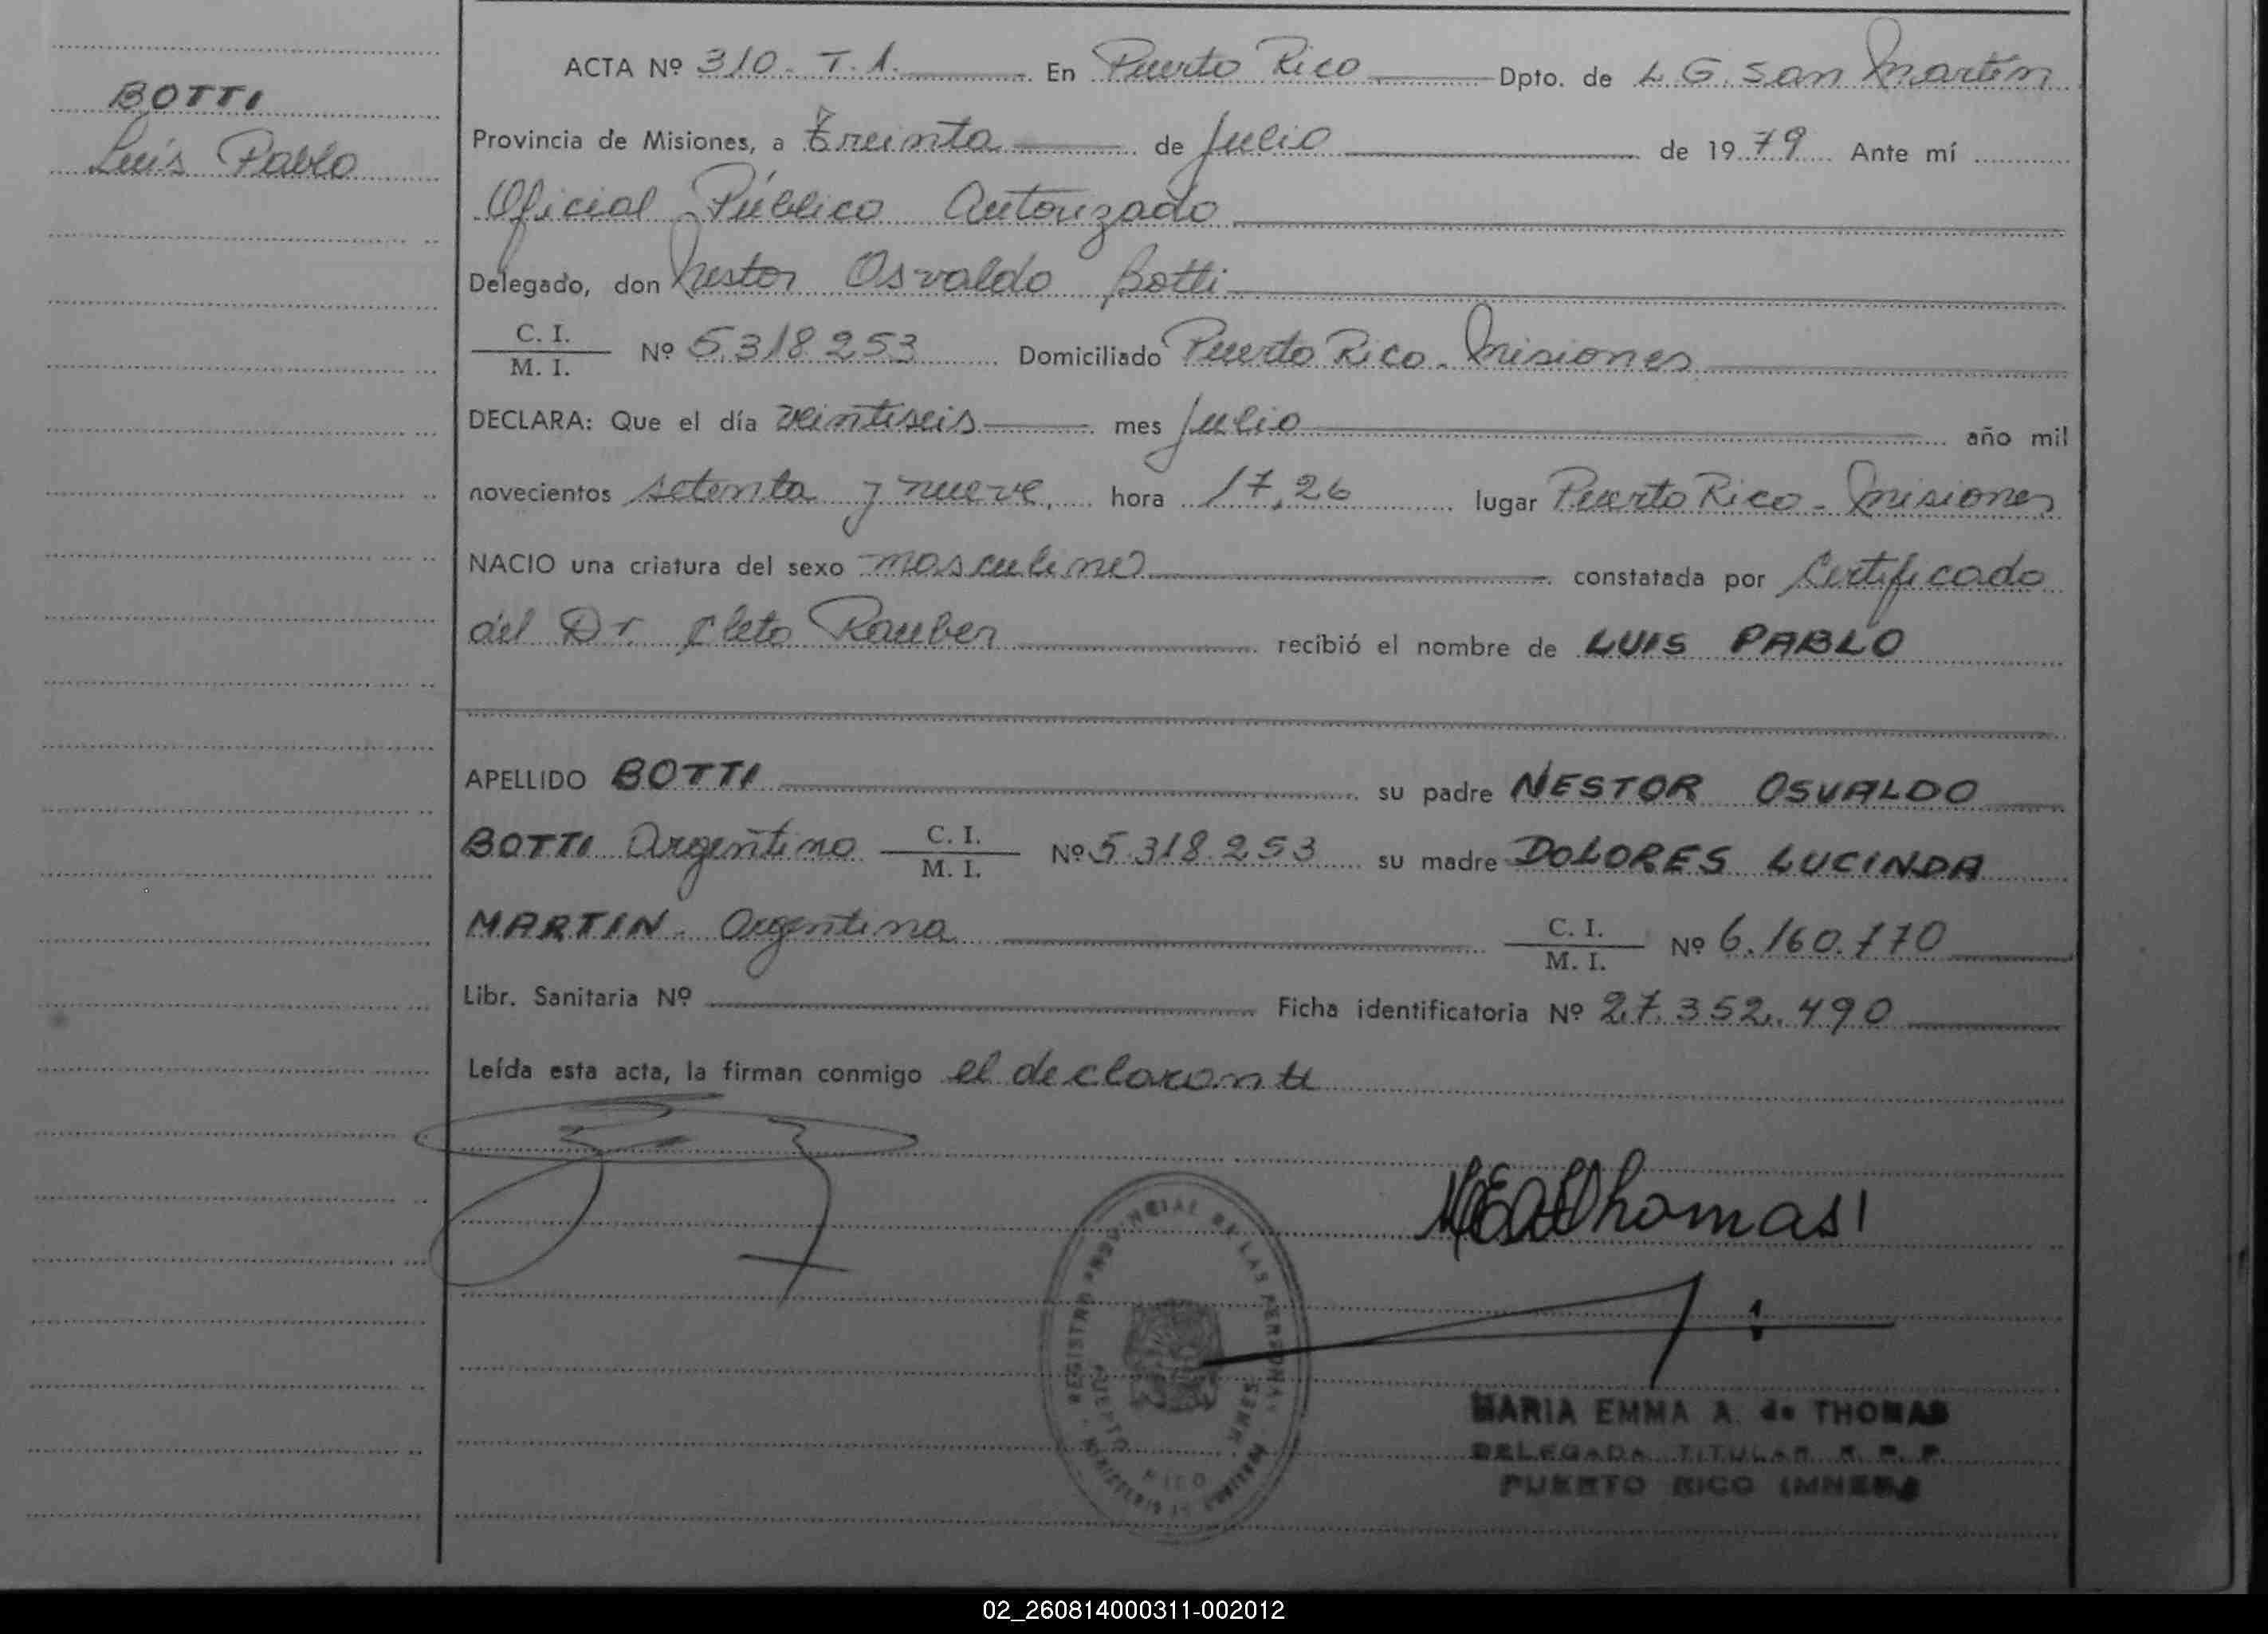 BOTTI
Luis Pablo
ACTA Nº 310 - T. 1. En Puerto Rico Dpto. de L. G. San Martín
Provincia de Misiones, a Treinta de Julio de 1979 Ante mí
Oficial Público Autorizado
Delegado, don Nestor Osvaldo Botti
C. I.
M. I. Nº 5.318.253 Domiciliado Puerto Rico - Misiones
DECLARA: Que el día veintiseis mes Julio año mil
novecientos setenta y nueve, hora 17,26 lugar Puerto Rico - Misiones
NACIO una criatura del sexo masculino constatada por Certificado
del Dr. Cleto Rauber recibió el nombre de LUIS PABLO
APELLIDO BOTTI su padre NESTOR OSVALDO
BOTTI Argentino C. I. M. I. Nº 5.318.253 su madre DOLORES LUCINDA
MARTIN - Argentina C. I. M. I. Nº 6.160.170
Libr. Sanitaria Nº Ficha identificatoria Nº 27.352.490
Leída esta acta, la firman conmigo el declarante
Thomas
REGISTRO PROVINCIAL DE LAS PERSONAS
PUERTO RICO
MARIA EMMA A. de THOMAS
DELEGADA TITULAR R. P. P.
PUERTO RICO (MNES)
02_260814000311-002012